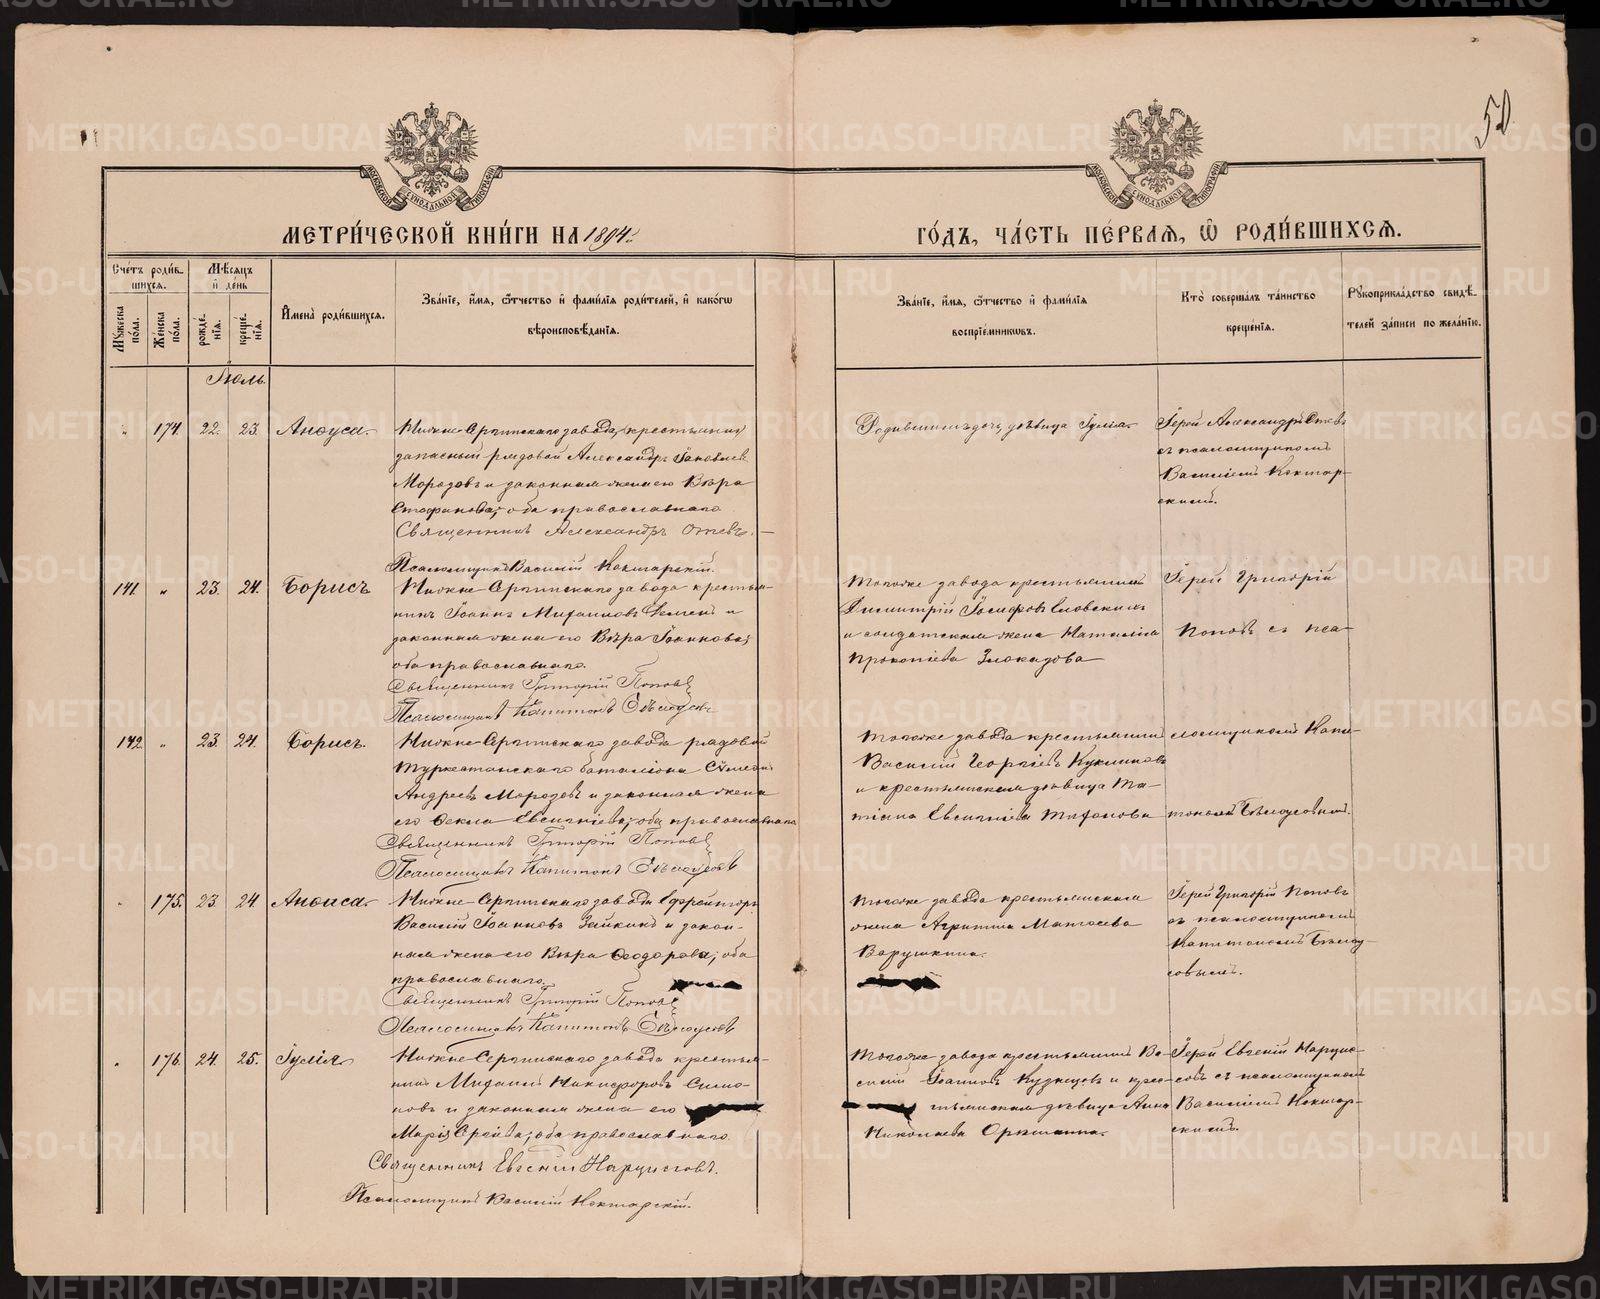 50
МЕТРИ́ЧЕСКОЙ КНИ́ГИ НА 1894.
ГО́ДЪ, ЧА́СТЬ ПЕ́РВАЯ, Ѿ РОДИ́ВШИХСЯ.
Сче́тъ роди́вшихся.
Мꙋ́жеска по́ла.
Же́нска по́ла.
Мѣ́сяцъ и҆ де́нь
рожде́нїя.
креще́нїя.
И҆мена̀ роди́вшихся.
Зва́нїе, и҆́мя, ѻ҆́тчество и҆ фами́лїя роди́телей, и҆ како́гѡ вѣроисповѣ́данїя.
Зва́нїе, и҆́мя, ѻ҆́тчество и҆ фами́лїя воспрїе́мникѡвъ.
Кто̀ соверша́лъ та́инство креще́нїя.
Рꙋкоприкла́дство свидѣ́телей за́писи по жела́нїю.
Іюль.
„ 174. 22. 23. Анѳуса.
Нижне-Сергинскаго завода, крестьянинъ
запасный рядовой Александръ Іаковлевъ
Морозовъ и законная жена его Вѣра
Стефанова; оба православнаго.
Священникъ Александръ
Псаломщикъ Василій Нектарскій.
Родившейся дочь дѣвица Іулія.
Іерей Александръ
съ псаломщикомъ
Василіемъ Нектар-
скимъ.
141. „ 23. 24. Борисъ
Нижне-Сергинскаго завода крестья-
нинъ Іоаннъ Михаиловъ и
законная жена его Вѣра Іоаннова;
оба православнаго.
Священникъ Григорій Поповъ
Псаломщикъ Капитонъ Бѣлоусовъ
Тогоже завода крестьянинъ
Димитрій Іосифовъ
и солдатская жена Наталія
Прокопіева Злоказова
Іерей Григорій
Поповъ съ пса-
142. „ 23. 24. Борисъ.
Нижне-Сергинскаго завода рядовой
Туркестанскаго баталіона Сѵмеонъ
Андреевъ Морозовъ и законная жена
его Ѳекла Евгеніева; оба православнаго
Священникъ Григорій Поповъ
Псаломщикъ Капитонъ Бѣлоусовъ
Тогоже завода крестьянинъ
Василій Георгіевъ Куклиновъ
и крестьянская дѣвица Та-
тіана Евгеніева
ломщикомъ Капи-
тономъ Бѣлоусовымъ.
„ 175. 23. 24. Анѳиса.
Нижне-Сергинскаго завода Ефрейторъ
Василій Іоанновъ Зайкинъ и закон-
ная жена его Вѣра Ѳеодорова; оба
православнаго.
Священникъ Григорій Поповъ
Псаломщикъ Капитонъ Бѣлоусовъ
Тогоже завода крестьянская
жена Агрипина Матѳеева
Варушкина.
Іерей Григорій Поповъ
съ псаломщикомъ
Капитономъ Бѣлоу-
совымъ.
„ 176. 24. 25. Іулія
Нижне-Сергинскаго завода крестья-
нинъ Михаилъ Никифоровъ Симо-
новъ и законная жена его
Марія; оба православнаго.
Священникъ Евгеній Нарциссовъ.
Псаломщикъ Василій Нектарскій.
Тогоже завода крестьянинъ Ва-
силій Іоанновъ Кузнецовъ и крес-
тьянская дѣвица Анна
Николаева
Іерей Евгеній Нарцис-
совъ съ псаломщикомъ
Василіемъ Нектар-
скимъ.
METRIKI.GASO-URAL.RU